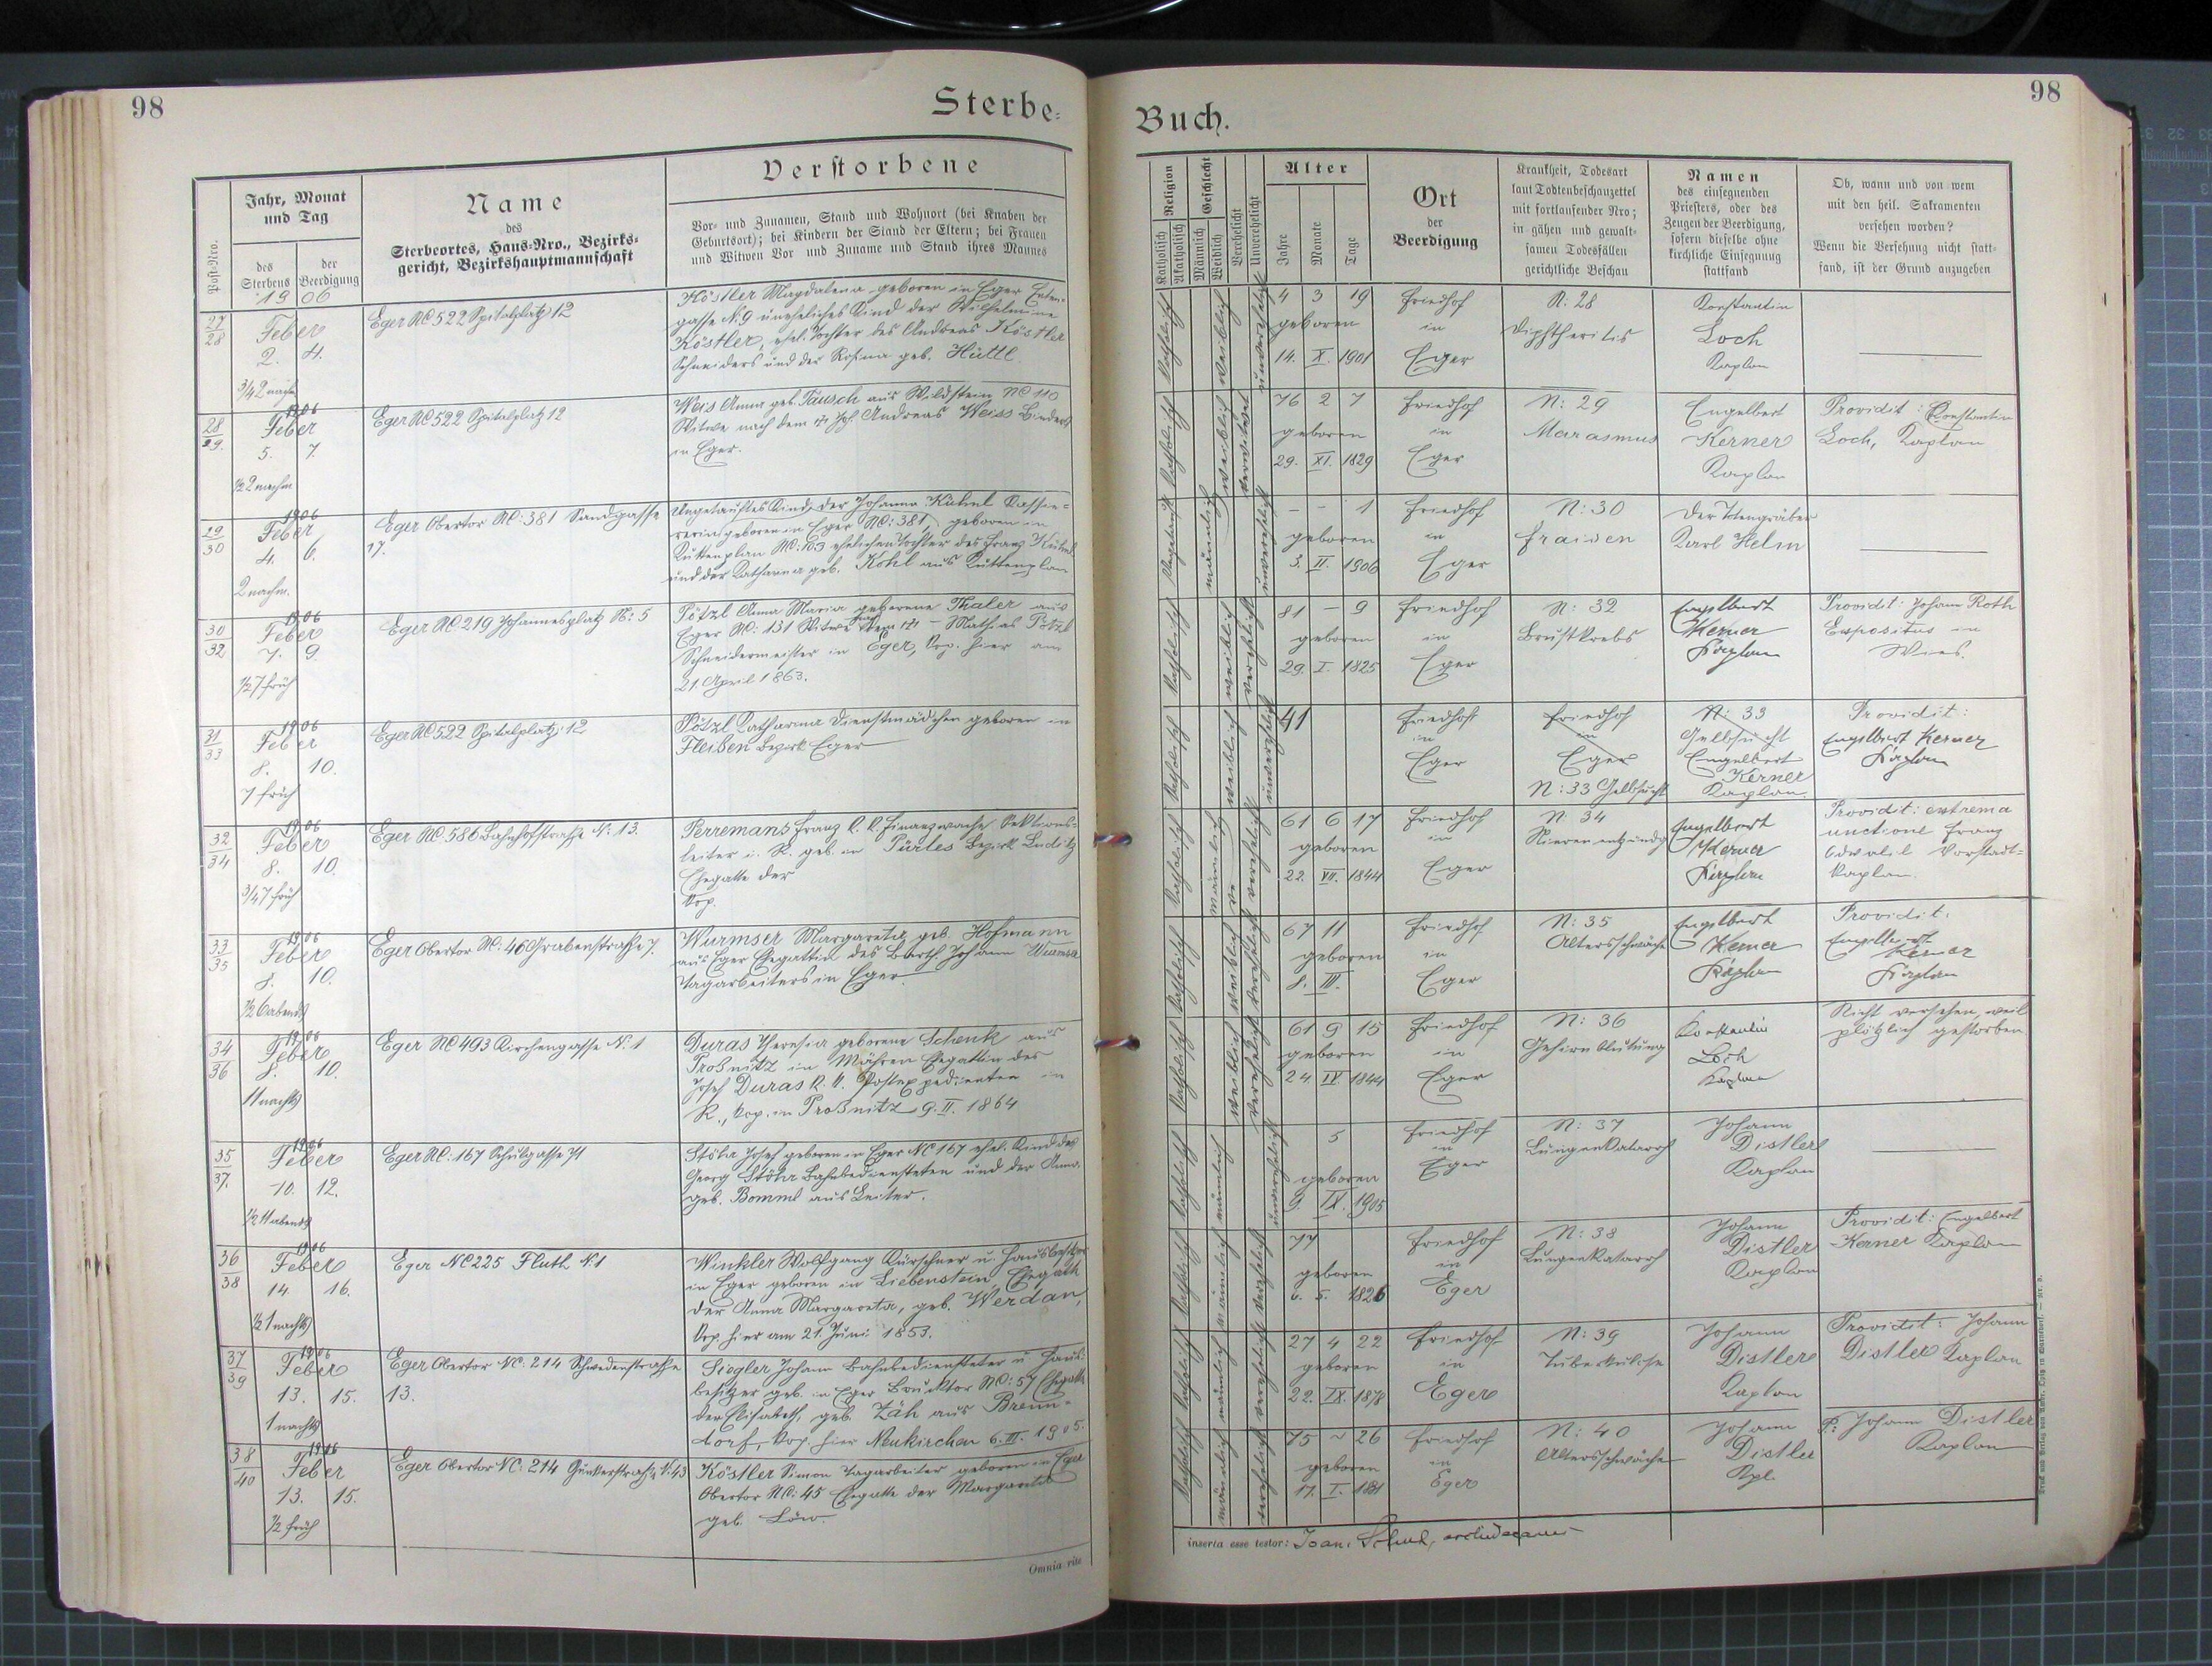 98
Sterbe=
Buch.
98
Post-Nro.
Jahr, Monat
und Tag
des
Sterbens
der
Beerdigung
Name
des
Sterbeortes, Haus-Nro., Bezirks-
gericht, Bezirkshauptmannschaft
Verstorbene
Vor- und Zunamen, Stand und Wohnort (bei Knaben der
Geburtsort); bei Kindern der Stand der Eltern; bei Frauen
und Witwen Vor und Zuname und Stand ihres Mannes
Religion
Katholisch
Akatholisch
Geschlecht
Männlich
Weiblich
Verehelicht
Unverehelicht
Alter
Jahre
Monate
Tage
Ort
der
Beerdigung
Krankheit, Todesart
laut Todtenbeschauzettel
mit fortlaufender Nro;
in gähen und gewalt-
samen Todesfällen
gerichtliche Beschau
Namen
des einsegnenden
Priesters, oder des
Zeugen der Beerdigung,
sofern dieselbe ohne
kirchliche Einsegnung
stattfand
Ob, wann und von wem
mit den heil. Sakramenten
versehen worden?
Wenn die Versehung nicht statt-
fand, ist der Grund anzugeben
27
28
1906
Feber
2. 4.
3/4 2 nachm
Eger NC 522 Spitalplatz 12
Köstler Magdalena geboren in Eger
gasse N. 9 uneheliches Kind der Wilhelmine
Köstler, ehel. Tochter des Andreas Köstler
Schneiders und der Rosina geb. Hüttl
katholisch weiblich unverehelicht
4 3 19
geboren
14. X. 1901
Friedhof
in
Eger
N. 28
Diphtheritis
Konstantin
Loch
Kaplan
28
29.
1906
Feber
5. 7.
1/2 2 nachm
Eger NC 522 Spitalplatz 12
Weis Anna geb. Tausch aus Wildstein NC 110
Witwe nach dem Andreas Weiss Binders
in Eger.
katholisch weiblich verwitwet
76 2 7
geboren
29. XI. 1829
Friedhof
in
Eger
N: 29
Marasmus
Engelbert
Kerner
Kaplan
Providit: Konstantin
Loch, Kaplan
29
30
1906
Feber
4. 6.
2 nachm.
Eger Obertor NC: 381 Sandgasse
17.
Ungetauftes Kind, der Johanna Kühnl Kassie-
rerin geboren in Eger NC: 381, geboren in
Kuttenplan ehelichen Tochter des Franz Kühnl
und der Katharina geb. Köhl aus Kuttenplan
männlich unverehelicht
- - 1
geboren
3. II. 1906
Friedhof
in
Eger
N: 30
Fraisen
Der Totengräber
Karl Helm
30
32
1906
Feber
7. 9.
1/2 7 früh
Eger NC 219 Johannesplatz N: 5
Pötzl Anna Maria geborene Thaler aus
Eger NC: 131 Witwe nach dem - Mathias Pötzl
Schneidermeister in Eger, Kop. hier am
21. April 1863.
katholisch weiblich
81 - 9
geboren
29. I. 1825
Friedhof
in
Eger
N: 32
Brustkrebs
Engelbert
Kerner
Kaplan
Providit: Johann Roth
Expositus in
Wies.
31
33
1906
Feber
8. 10.
7 früh
Eger NC 522 Spitalplatz 12
Pötzl Katharina Dienstmädchen geboren in
Fleißen Bezirk Eger
katholisch weiblich unverehelicht
41
Friedhof
in
Eger
Friedhof
in
Eger
N: 33 Gelbsucht
N: 33
Gelbsucht
Engelbert
Kerner
Kaplan.
Providit:
Engelbert Kerner
Kaplan
32
34
1906
Feber
8. 10.
3/4 7 früh
Eger NC 586 Bahnhofstraße N: 13.
Perremans Franz k. k. Finanzwache Sektions-
leiter i. R. geb. in Pürles Bezirk Luditz
Ehegatte der
Kop.
katholisch männlich verehelicht
61 6 17
geboren
22. VII. 1844
Friedhof
in
Eger
N. 34
Nierenentzündg
Engelbert
Kerner
Kaplan
Providit: extrema
unctione Franz
Vorstadt-
kaplan.
33
35
1906
Feber
8. 10.
1/2 6 abends
Eger Obertor N: 46 Grabenstraße 7.
Wurmser Margareta geb. Hofmann
aus Eger Ehegattin des Barth Johann Wurmser
Tagarbeiters in Eger.
katholisch weiblich verehelicht
67 11
geboren
8. III.
Friedhof
in
Eger
N: 35
Altersschwäche
Engelbert
Kerner
Kaplan
Providit.
Engelbert
Kerner
Kaplan
34
36
1906
Feber
8. 10.
11 nachts
Eger NC 493 Kirchengasse N: 1
Duras Theresia geborene Schenk aus
Proßnitz in Mähren Ehegattin des
Josef Duras k. k. Postexpedienten in
R., kop. in Proßnitz 9. II. 1864
katholisch weiblich verehelicht
61 9 15
geboren
24. IV. 1844
Friedhof
in
Eger
N: 36
Gehirnblutung
Konstantin
Loch
Kaplan
Nicht versehen, weil
plötzlich gestorben
35
37.
1906
Feber
10. 12.
1/2 11 abends
Eger NC: 167 Schulgasse 71
Stöhr Josef geboren in Eger NC 167 ehel. Kind des
Georg Stöhr Bahnbediensteten und der Anna
geb. Bomml aus Leiter.
katholisch männlich unverehelicht
5
geboren
9. IX. 1905
Friedhof
in
Eger
N: 37
Lungenkatarrh
Johann
Distler
Kaplan
36
38
1906
Feber
14. 16.
1/2 1 nachts
Eger NC 225 Fluth N: 1
Winkler Wolfgang Kürschner u Hausbesitzer
in Eger geboren in Liebenstein, Ehegatte
der Anna Margareta, geb. Werdan,
Kop. hier am 21. Juni 1853.
katholisch männlich verehelicht
77
geboren
6. 5. 1826
Friedhof
in
Eger
N: 38
Lungenkatarrh
Johann
Distler
Kaplan
Providit: Engelbert
Kerner Kaplan
37
39
1906
Feber
13. 15.
1 nachts
Eger Obertor NC: 214 Schwedenstraße
13.
Siegler Johann Bahnbediensteter u Haus-
besitzer geb. in Eger Brucktor NC: 57 Ehegatte
der Elisabeth, geb. Zäh aus Brenn-
dorf, kop. hier Neukirchen 6. III. 1905.
katholisch männlich verehelicht
27 4 22
geboren
22. IX. 1878
Friedhof
in
Eger
N: 39
Tuberkulose
Johann
Distler
Kaplan
Providit: Johann
Distler Kaplan
38
40
1906
Feber
13. 15.
1/2 früh
Eger Obertor NC: 214
Köstler Simon Tagarbeiter geboren in Eger
Obertor NC: 45 Ehegatte der Margareta
geb. Löw.
katholisch männlich verehelicht
75 ~ 26
geboren
17. I. 1831
Friedhof
in
Eger
N: 40
Altersschwäche
Johann
Distler
Kpl.
P: Johann Distler
Kaplan
Omnia rite
inserta esse testor: Joan. archidecanus